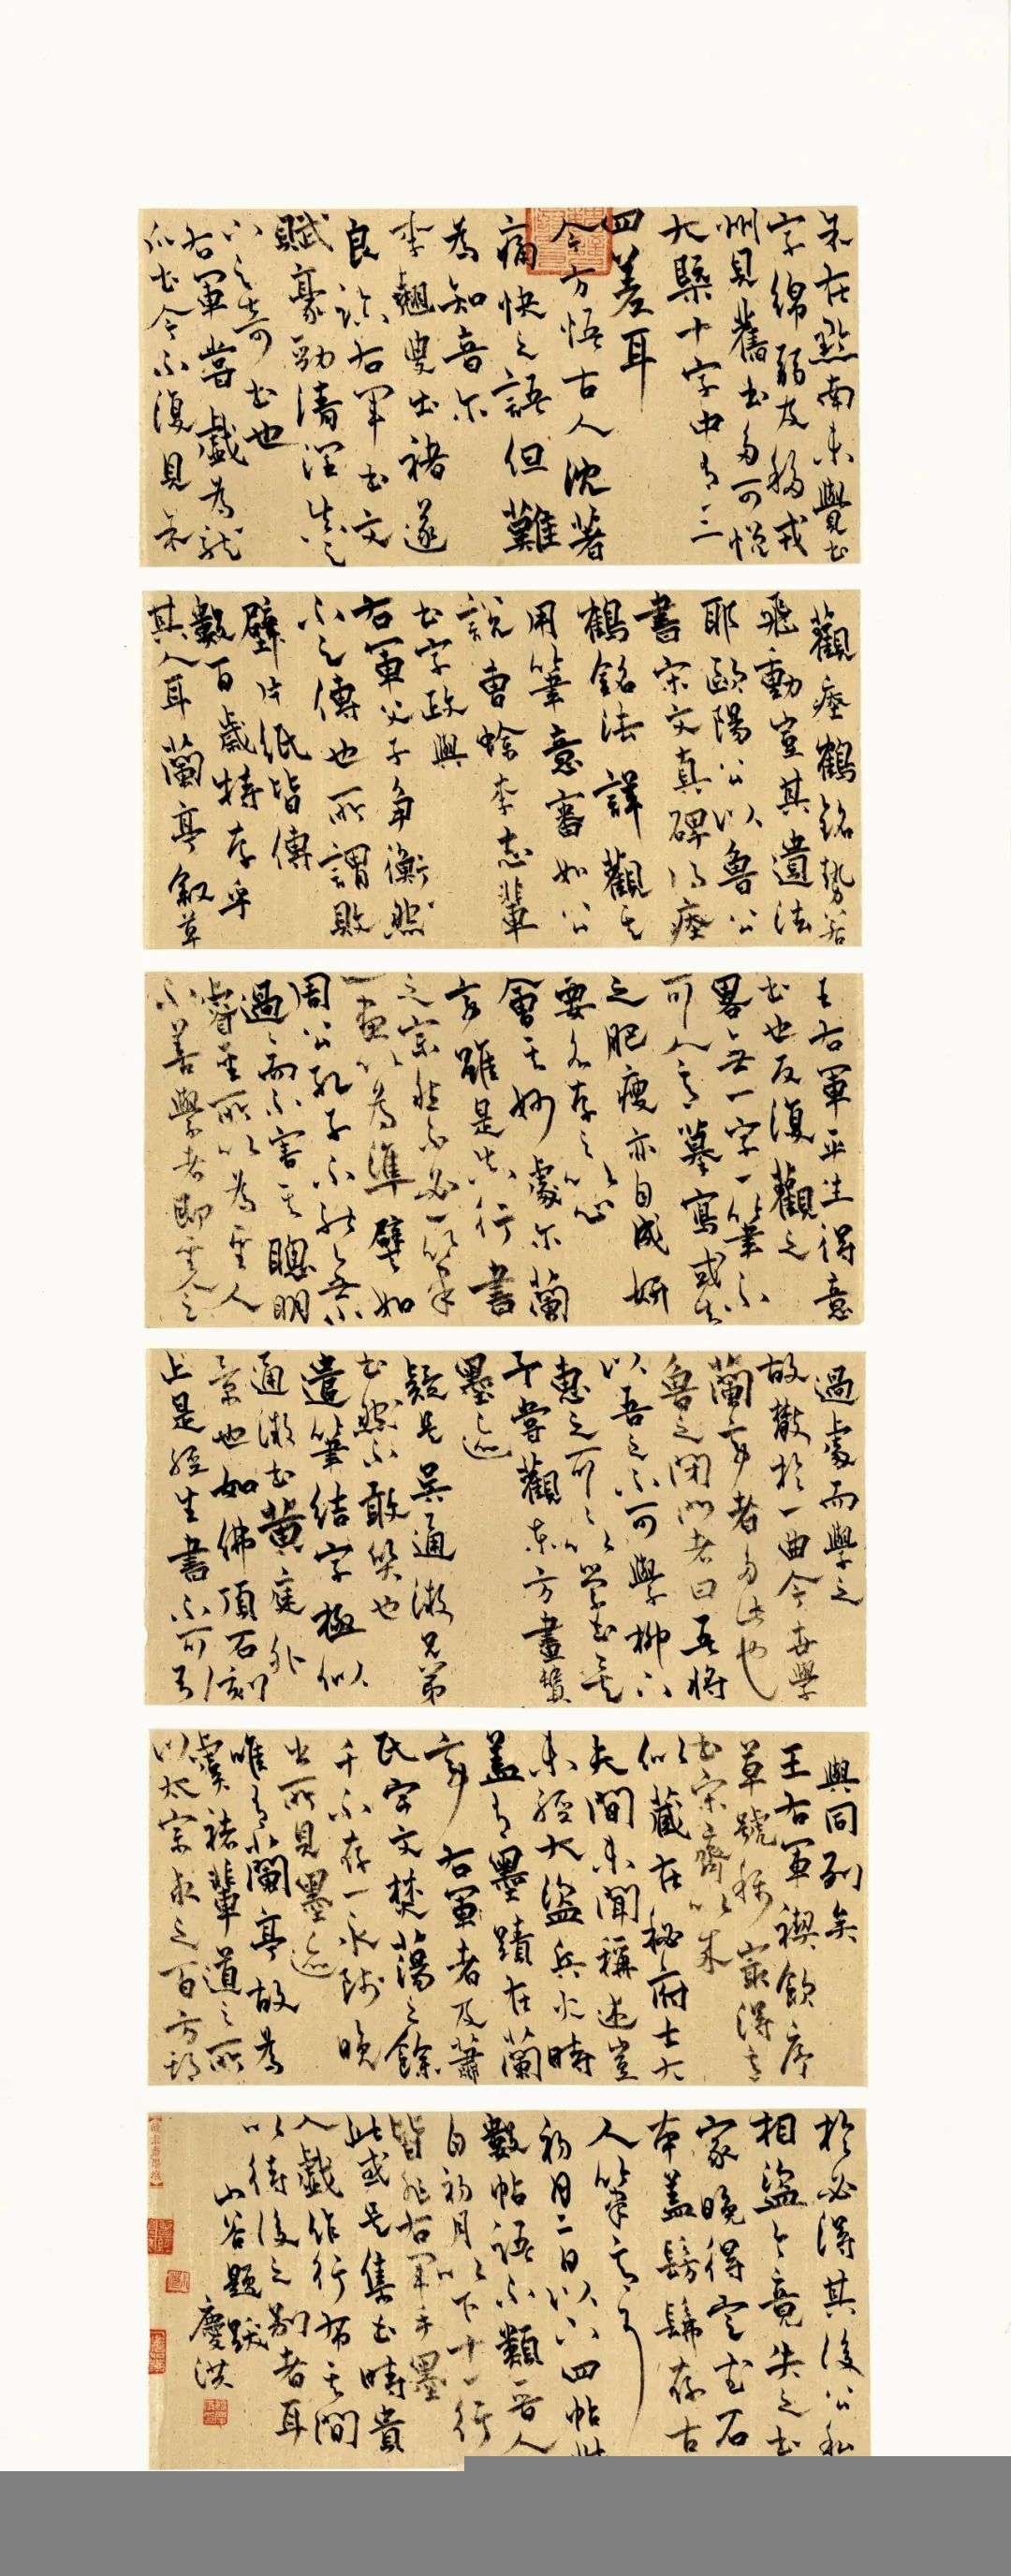 余在黔南未覺書
字綿弱及移戎
州見舊書多可憎
大槩十字中有三
四差耳
今方悟古人沈著
痛快之語但難
為知音尔
李翹叟出褚遂
良臨右軍書文
賦豪勁清潤
之奇書也
右軍嘗戲為龍
爪書今不復見余
觀瘞鶴銘勢若
飛動豈其遺法
耶歐陽公以魯公
書宋文貞碑得瘞
鶴銘法詳觀其
用筆意審如公
說曹蜍李志輩
書字政與
右軍父子爭衡然
不足傳也所謂敗
壁片紙皆傳
數百歲特存乎
其人耳蘭亭叙草
王右軍平生得意
書也反復觀之
畧無一字一筆不
可人意摹寫或失
之肥瘦亦自成妍
要各存之以心
會其妙處尔蘭
亭雖是真行書
之宗然不必一筆
一畫以為準譬如
周公孔子不能無小
過過而不害其聰明
睿聖所以為聖人
不善學者即聖人之
過處而學之
故蔽於一曲今世學
蘭亭者多此也
魯之閉門者曰吾將
以吾之不可學柳下
惠之可可以學書矣
予嘗觀東方畫贊
墨迹
疑是吳通微兄弟
書然不敢質也
遣筆結字極似
通微書黃庭外
景也如佛頂石刻
止是經生書不可
與同列矣
王右軍禊飲序
草號稱最得意
書宋齊以來
似藏在秘府士大
夫間未聞稱述豈
未經大盜兵火時
蓋有墨蹟在蘭
亭右者及蕭
氏宇文焚蕩之餘
千不存一永師晚
出所見墨迹
唯有蘭亭故為
虞褚輩道之所
以太宗求之百方期
於必得其後公私
相盜今竟失之書
家晚得定武石
本蓋髣髴存古
人筆意耳
初月二日以下四帖
數帖語不類晉人
自初月以下十一行
皆非右軍手墨
此或是集書時貴
人戲作行布其間
以待後之別者耳
山谷題跋
慶洪